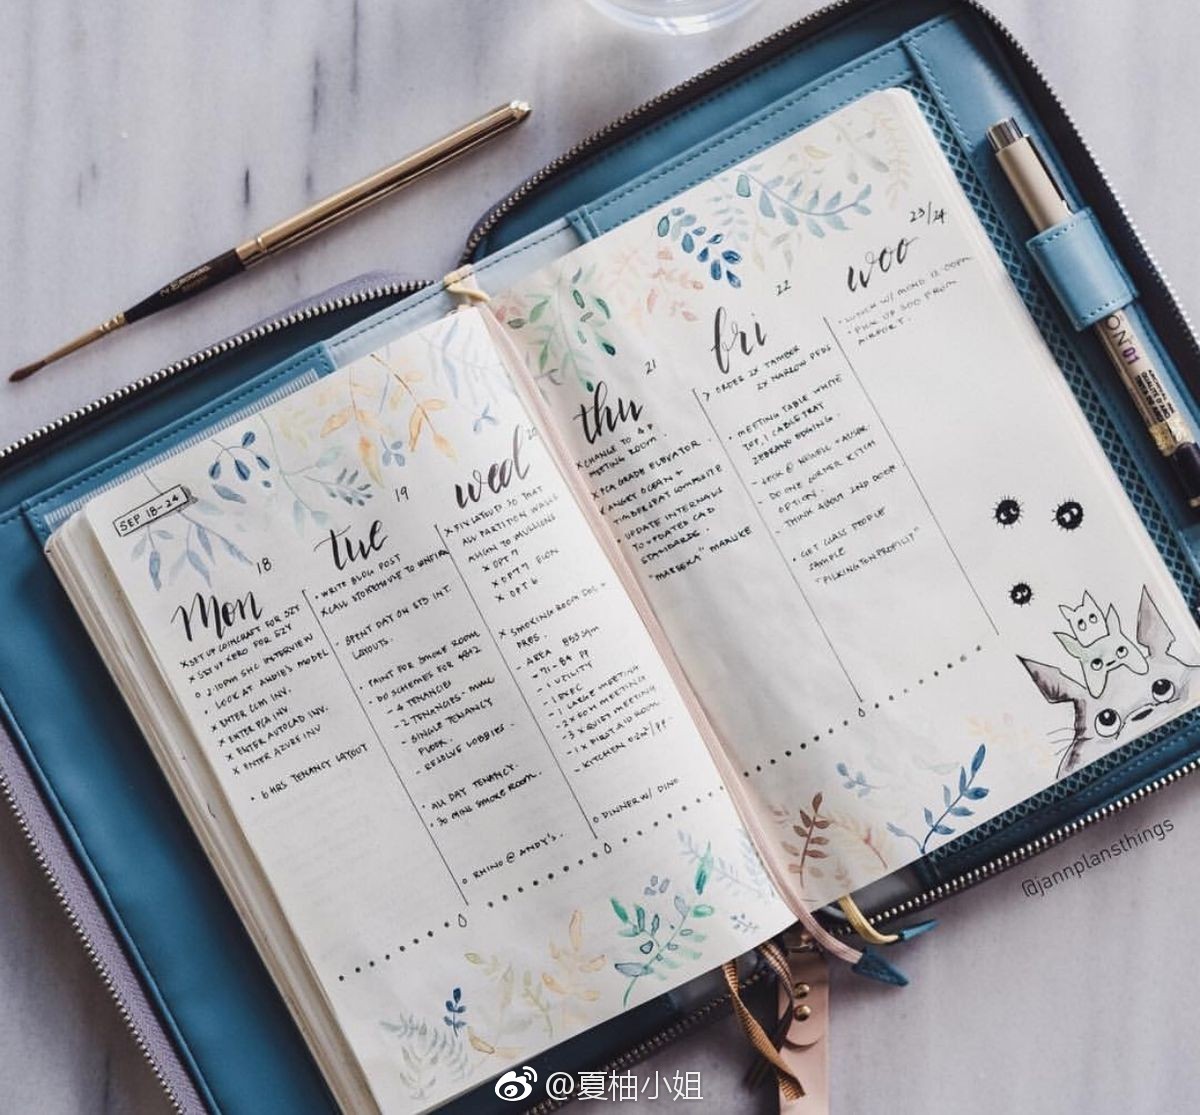 SEP 18-24
18
Mon
X SET UP COIMCRAFT FOR SZY
X SET UP XERO FOR SZY
O 2.10PM SHC INTERVIEW
- LOOK AT ANDIE'S MODEL
X ENTER CCM INV.
X ENTER PCA INV
X ENTER AUTOCAD INV.
X ENTER AZURE INV
• 6 HRS TENANCY LAYOUT
19
tue
• WRITE BLOG POST
X CALL STOKEHOUSE TO
- SPENT DAY ON STD INT.
LAYOUTS.
- PAINT FOR SMOKE ROOM
- DO SCHEMES FOR
- 4 TENANCIES
- 2 TENANCIES -
- SINGLE TENANCY
FLOOR.
- RESOLVE LOBBIES
• ALL DAY TENANCY.
• 30 MINS SMOKE ROOM.
O RHINO @ ANDY'S.
20
wed
X FIX LAYOUTS SO THAT
ALL PARTITION WALLS
ALIGN TO MULLIONS
X OPT 7
X OPT 7 FION
X OPT 6
X SMOKING ROOM
PRES.
- AREA 853 sqm
- 71-84 PP
- 1 UTILITY
- 1 EXEC
- 1 LARGE MEETING
- 2 X 8 OM MEETING
- 3 X QUIET MEETING
- 1 X FIRST AID ROOM
- KITCHEN
O DINNER W/ DINO
21
thu
X CHANGE TO 4 P.
MEETING ROOM.
X PCA GRADE ELEVATOR.
TIMBER PAT COMPOSITE
UPDATE INTERNALS
TO UPDATED CAD
STANDARDS.
"MAREEKA" MARUKE
22
fri
> ORDER 2X TAMBER
2X NARROW PEDS
• MEETING TABLE WHITE
TOP, 1 CABLE TRAY
ZEBRANO EDGING
- DO ONE CORNER KITCH
OPTION.
- THINK ABOUT 2ND DOOR
• GET GLASS PEOPLE
SAMPLE
"PILKINGTON PROFILIT"
23/24
woo
• LUNCH W/ MOHD 12.00PM
• PICK UP SOO FROM
AIRPORT.
ON 01
@jannplansthings
@夏柚小姐